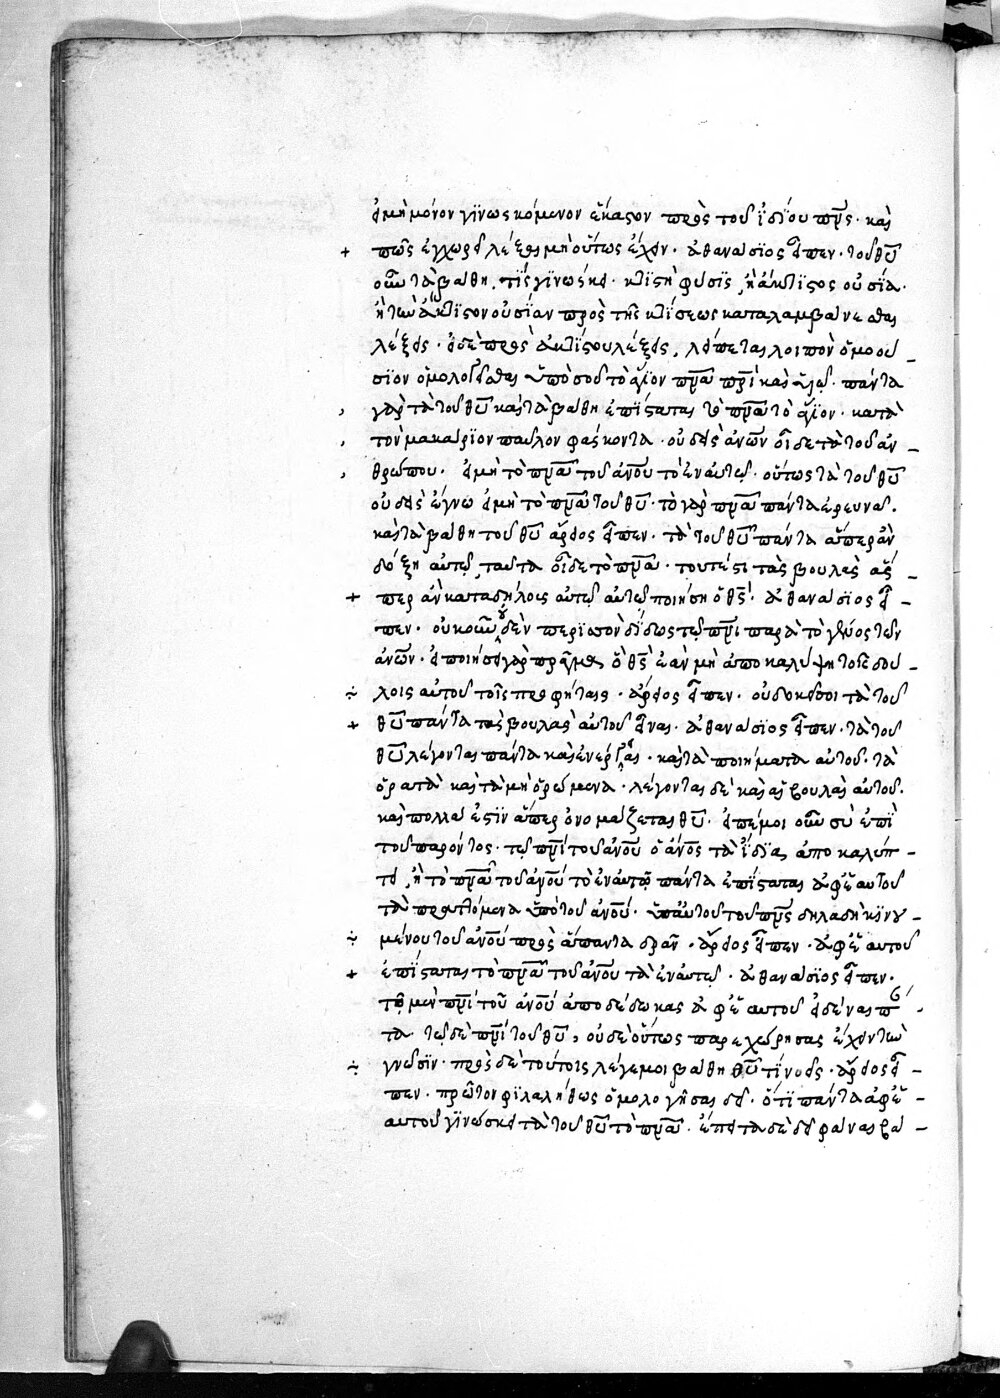 εἰ μὴ μόνον γϊνωσκόμενον ἕκαστον πρὸς τοῦ ἰδΐου πρς· καὶ
+ πῶς ἐγχωρεῖ λέξαι μὴ οὕτως ἔχειν· ἀθανάσϊος εἶπεν· τοῦ θυ
οὖν τὰ βάθη, τίς γϊνώσκει· κτϊστὴ φύσϊς, ἢ ἄκτϊστος οὐσία·
ἢ τὴν ἄκτϊστον οὐσίαν πρὸς τῆς κτίσεως καταλαμβάνεσθαι
λέξεις· εἰ δὲ πρὸς ἀκτίστου λέξεις, λείπεται λοιπὸν ὁμοού -
σϊον ὁμολογεῖσθαι ὑπὸ σοῦ τὸ ἅγϊον πνα πρϊ καὶ υἱῷ· πάντα
, γὰρ τὰ τοῦ θυ καὶ τὰ βάθη ἐπΐσταται τὸ πνα τὸ ἅγϊον· κατὰ
, τὸν μακάρϊον παῦλον φάσκοντα· οὐδεὶς ἀνων οἶδε τὰ τοῦ αν -
, θρώπου· εἰ μὴ τὸ πνα τοῦ ανου τὸ ἐν αὐτῷ· οὕτως τὰ τοῦ θυ
οὐδεὶς ἔγνω εἰ μὴ τὸ πνα τοῦ θυ· τὸ γὰρ πνα πάντα ἐρευνᾶ·
καὶ τὰ βάθη τοῦ θυ ἄρειος εἶπεν· τὰ τοῦ θυ πάντα ἅπερ ἂν
δόξῃ αὐτῷ, ταῦτα οἶδε τὸ πνα· τουτέστι τὰς βουλὰς ἅσ -
+ περ ἂν καταδήλους αὐτῷ αὐτῷ ποιήσῃ ὁ θς· ἀθανάσϊος εἶ -
πεν· οὐκοῦν οὐδὲν περϊσσὸν δΐδως τῷ πνϊ παρὰ τὸ γένος τῶν
ἀνων· οὐ ποιήσει γὰρ πρᾶγμα ὁ θς ἐὰν μὴ ἀποκαλύψῃ τοῖς δού -
÷ λοις αὐτοῦ τοῖς προφήταις· ἄρειος εἶπεν· οὐ δοκεῖ σοι τὰ τοῦ
+ θυ πάντα τὰς βουλὰς αὐτοῦ εἶναι· ἀθανάσϊος εἶπεν· τὰ τοῦ
θυ λέγονται πάντα καὶ ἐνέργειαι· καὶ τὰ ποιήματα αὐτοῦ· τὰ
ὁρατὰ καὶ τὰ μὴ ὁρώμενα· λέγονται δὲ καὶ αἱ βουλαὶ αὐτοῦ·
καὶ πολλά ἐστϊν ἅπερ ὀνομάζεται θυ· εἰπέ μοι οὖν σὺ ἐπὶ
τοῦ παρόντος· τῷ πνϊ τοῦ ανου ὁ ανος τὰ ἴδϊα ἀποκαλύπ -
τει, ἢ τὸ πνα τοῦ ανου τὸ ἐν αὐτῷ πάντα ἐπΐσταται ἀφ' ἑαυτοῦ
τὰ πραττόμενα ὑπὸ τοῦ ανου· ὑπ' αὐτοῦ τοῦ πνς δηλαδὴ κϊνου -
÷ μένου τοῦ ανου πρὸς ἅπαντα δρᾶν· ἄρειος εἶπεν· ἀφ' ἑαυτοῦ
+ ἐπΐσταται τὸ πνα τοῦ ανου τὰ ἐν αὐτῷ· ἀθανάσϊος εἶπεν·
τῷ μὲν πνϊ τοῦ ανου ἀποδέδωκας ἀφ' ἑαυτοῦ εἰδέναι π -
τα τῷ δὲ πνϊ τοῦ θυ, οὐδὲ οὕτως παρεχώρησας ἔχειν τὴν
÷ γνῶσϊν· πρὸς δὲ τούτοις λέγε μοι βάθη θυ τί νοεῖς· ἄρειος εἶ -
πεν· πρῶτον φϊλαλήθως ὁμολογῆσαι δεῖ· ὅτϊ πάντα ἀφ' ἑ -
αυτοῦ γϊνώσκει τὰ τοῦ θυ τὸ πνα· ἔπειτα δὲ δεῖ φάναι βά -